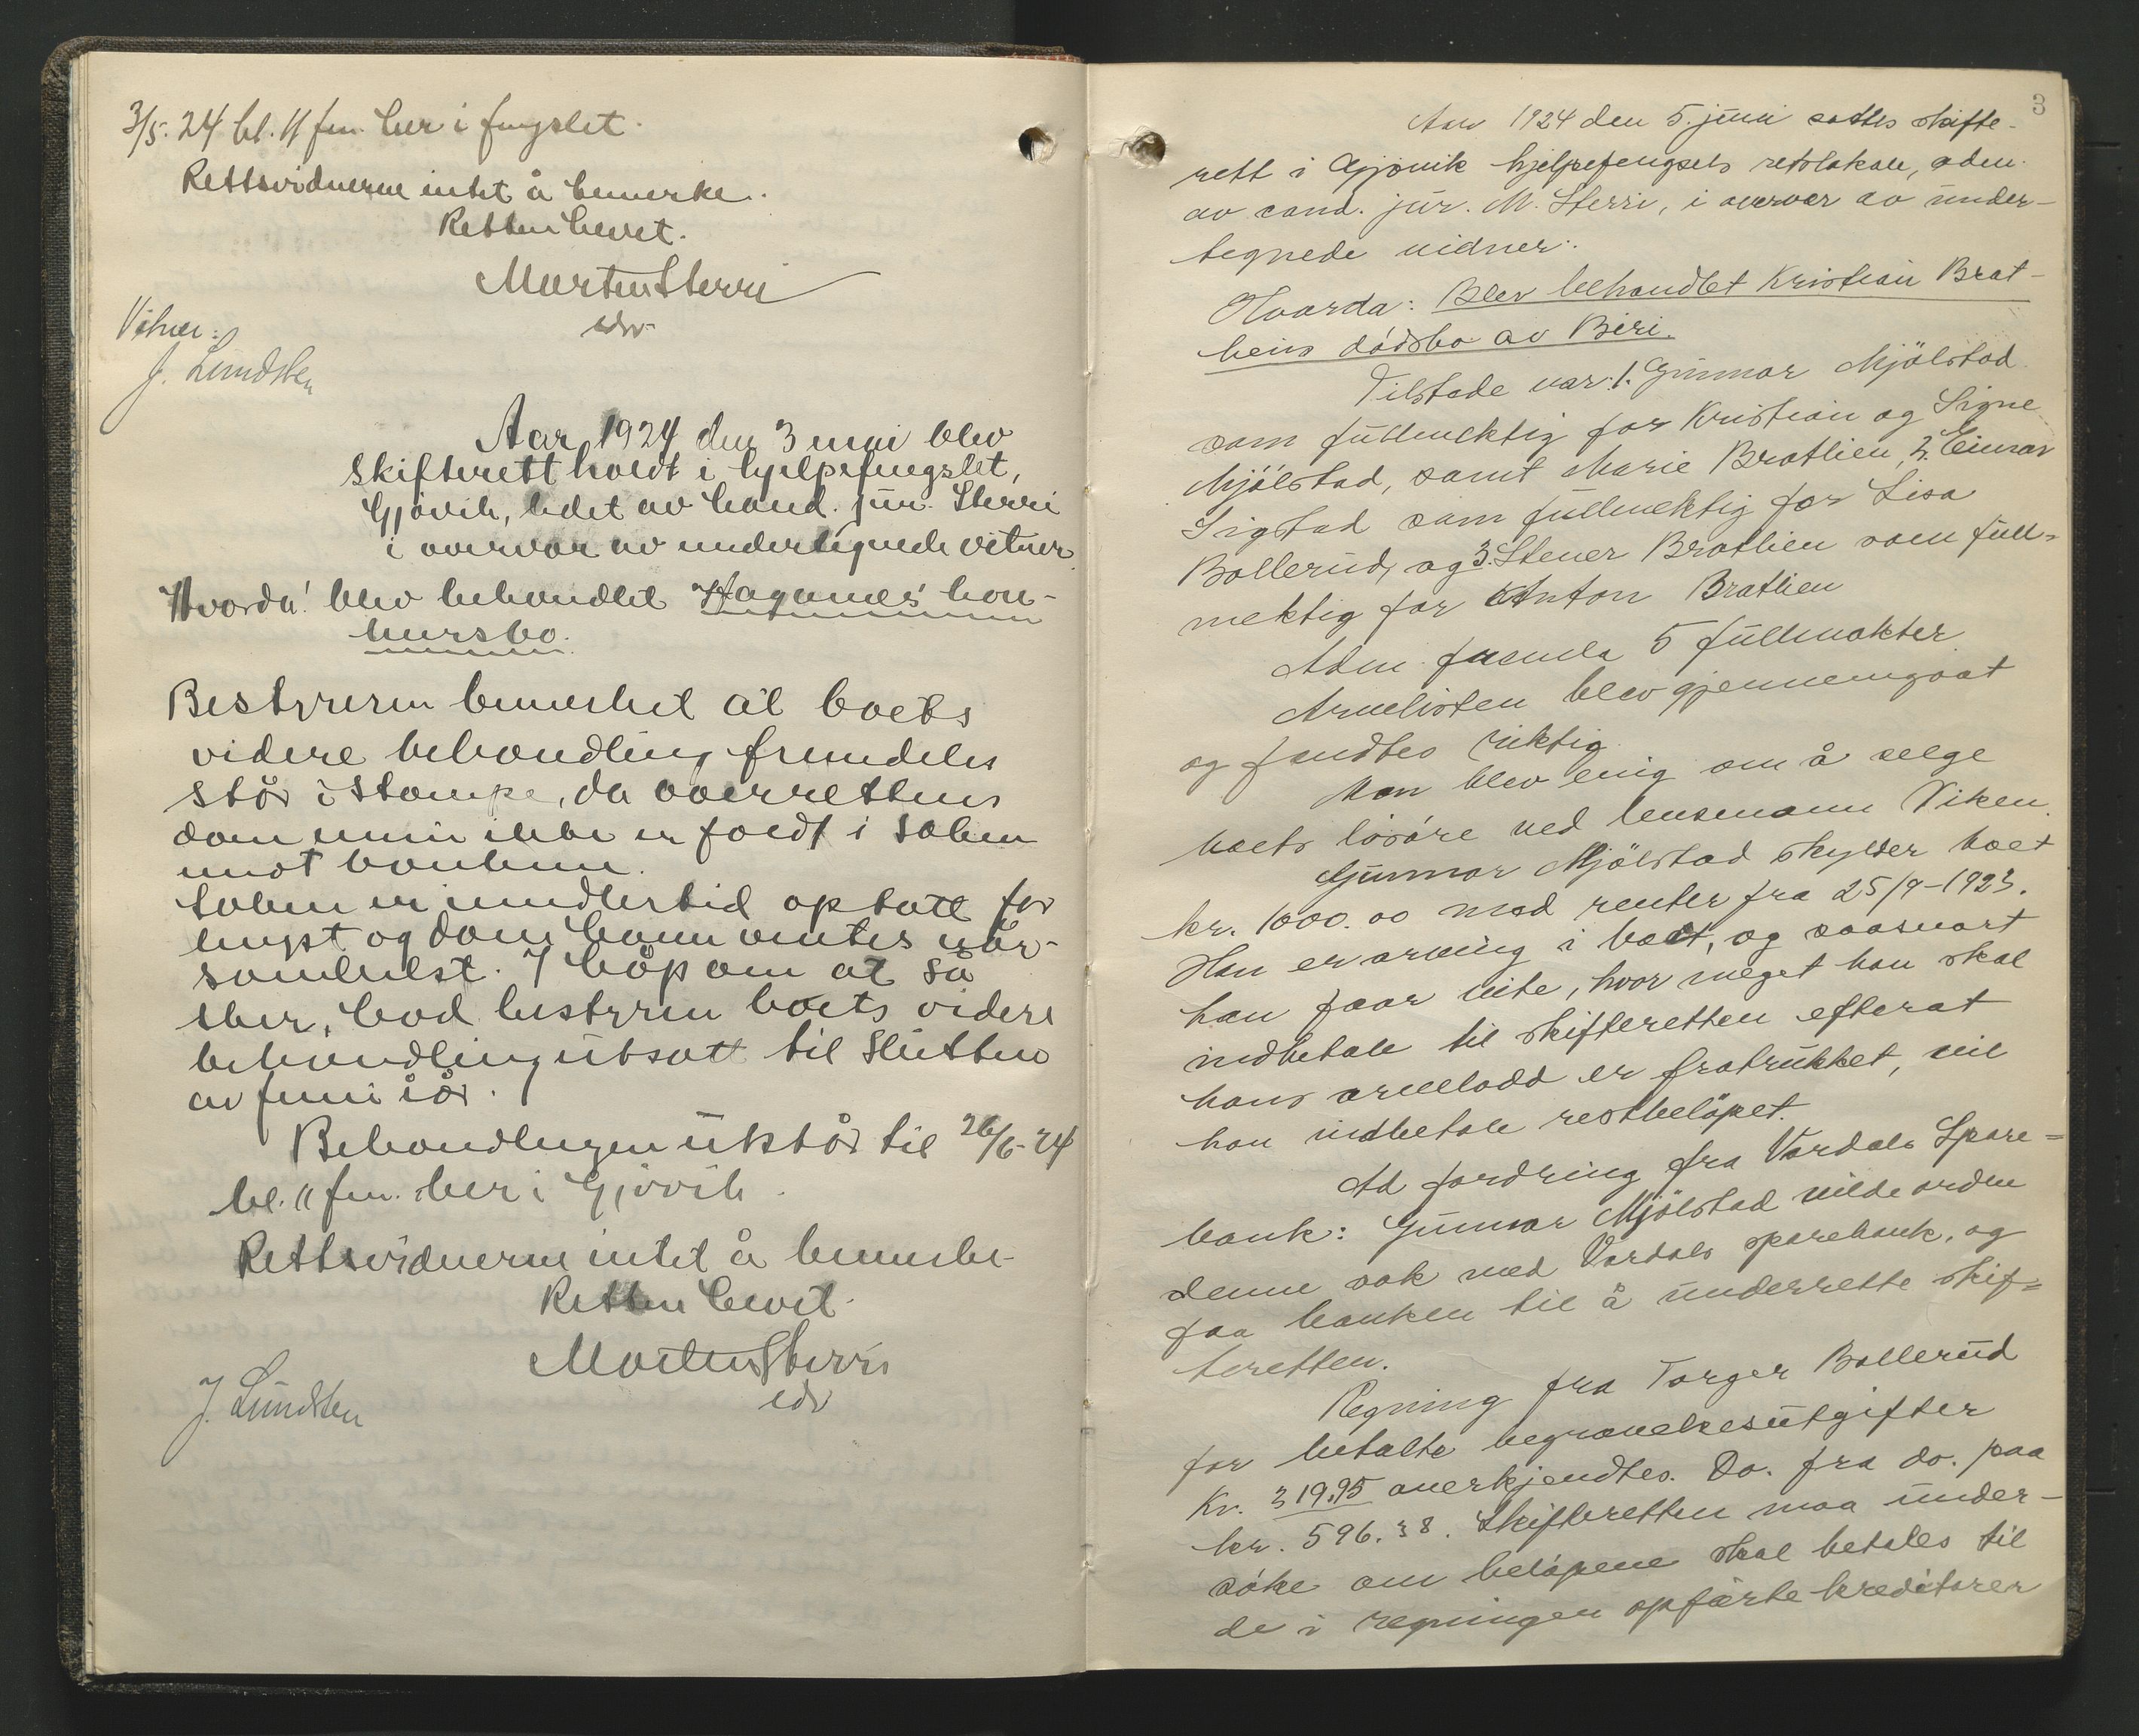 3/5. 24 kl. 11 fm. her i fengslet.
Rettsvidnerne intet å bemerke.
Retten hevet.
Morten Sterri
edv
Vitner:
J. Lundsten
Aar 1924 den 3 mai blev
skifterett holdt i hjelpefengslet,
Gjøvik, ledet av cand. jur. Sterri
i overvær av undertegnede vitner.
Hvorda! blev behandlet Haganes' kon-
kursbo.
Bestyreren bemerket at boets
videre behandling fremdeles
står i stampe, da overrettens
dom ennu ikke er faldt i saken
mot banken.
Saken er imidlertid optatt for
lengst og dom kann ventes når-
somhelst. I håp om at så
sker, bad bestyren boets videre
behandling utsatt til slutten
av juni iår.
Behandlingen utstår til 26/6-24
kl. 11 fm. her i Gjøvik.
Rettsvidnerne intet å bemerke.
Retten hevet.
Morten Sterri
edv
J. Lundsten
3
Aar 1924 den 5. juni sattes skifte-
rett i Gjøvik hjelpefengsels retslokale, adm.
av cand. jur. M. Sterri, i overvær av under-
tegnede vidner:
Hvorda: Blev behandlet Kristian Brat-
liens dødsbo av Biri.
Tilstede var: 1. Gunnar Mjölstad
som fullmektig for Kristian og Signe
Mjölstad, samt Marie Bratlien, 2. Einar
Sigstad som fullmektig for Lisa
Bollerud, og 3. Stener Bratlien som full=
mektig for Anton Bratlien
Adm. fremla 5 fullmakter
Arvelisten blev gjennemgaat
og fandtes riktig.
Man blev enig om å selge
boets lösöre ved lensmann Viken.
Gunnar Mjölstad skylder boet
kr. 1000.00 med renter fra 25/9-1923.
Han er arving i boet, og saasnart
han faar vite, hvor meget han skal
indbetale til skifteretten efterat
hans arvelodd er fratrukket, vil
han indbetale restbelöpet.
Ad fordring fra Vardals Spare=
bank: Gunnar Mjölstad vilde ordne
denne sak med Vardals sparebank, og
faa banken til å underrette skif=
teretten.
Regning fra Torger Bollerud
for betalte begravelsesutgifter
Kr. 319,95 anerkjendtes. Do. fra do. paa
kr. 596.38. Skifteretten maa under-
söke om belöpene skal betales til
de i regningen opførte kreditorer